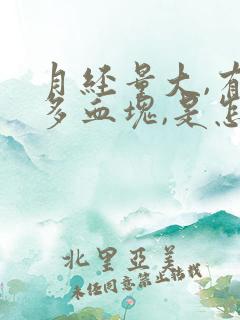 月经量大,有
多血块,是怎
北里亞美
未经同意禁止转载